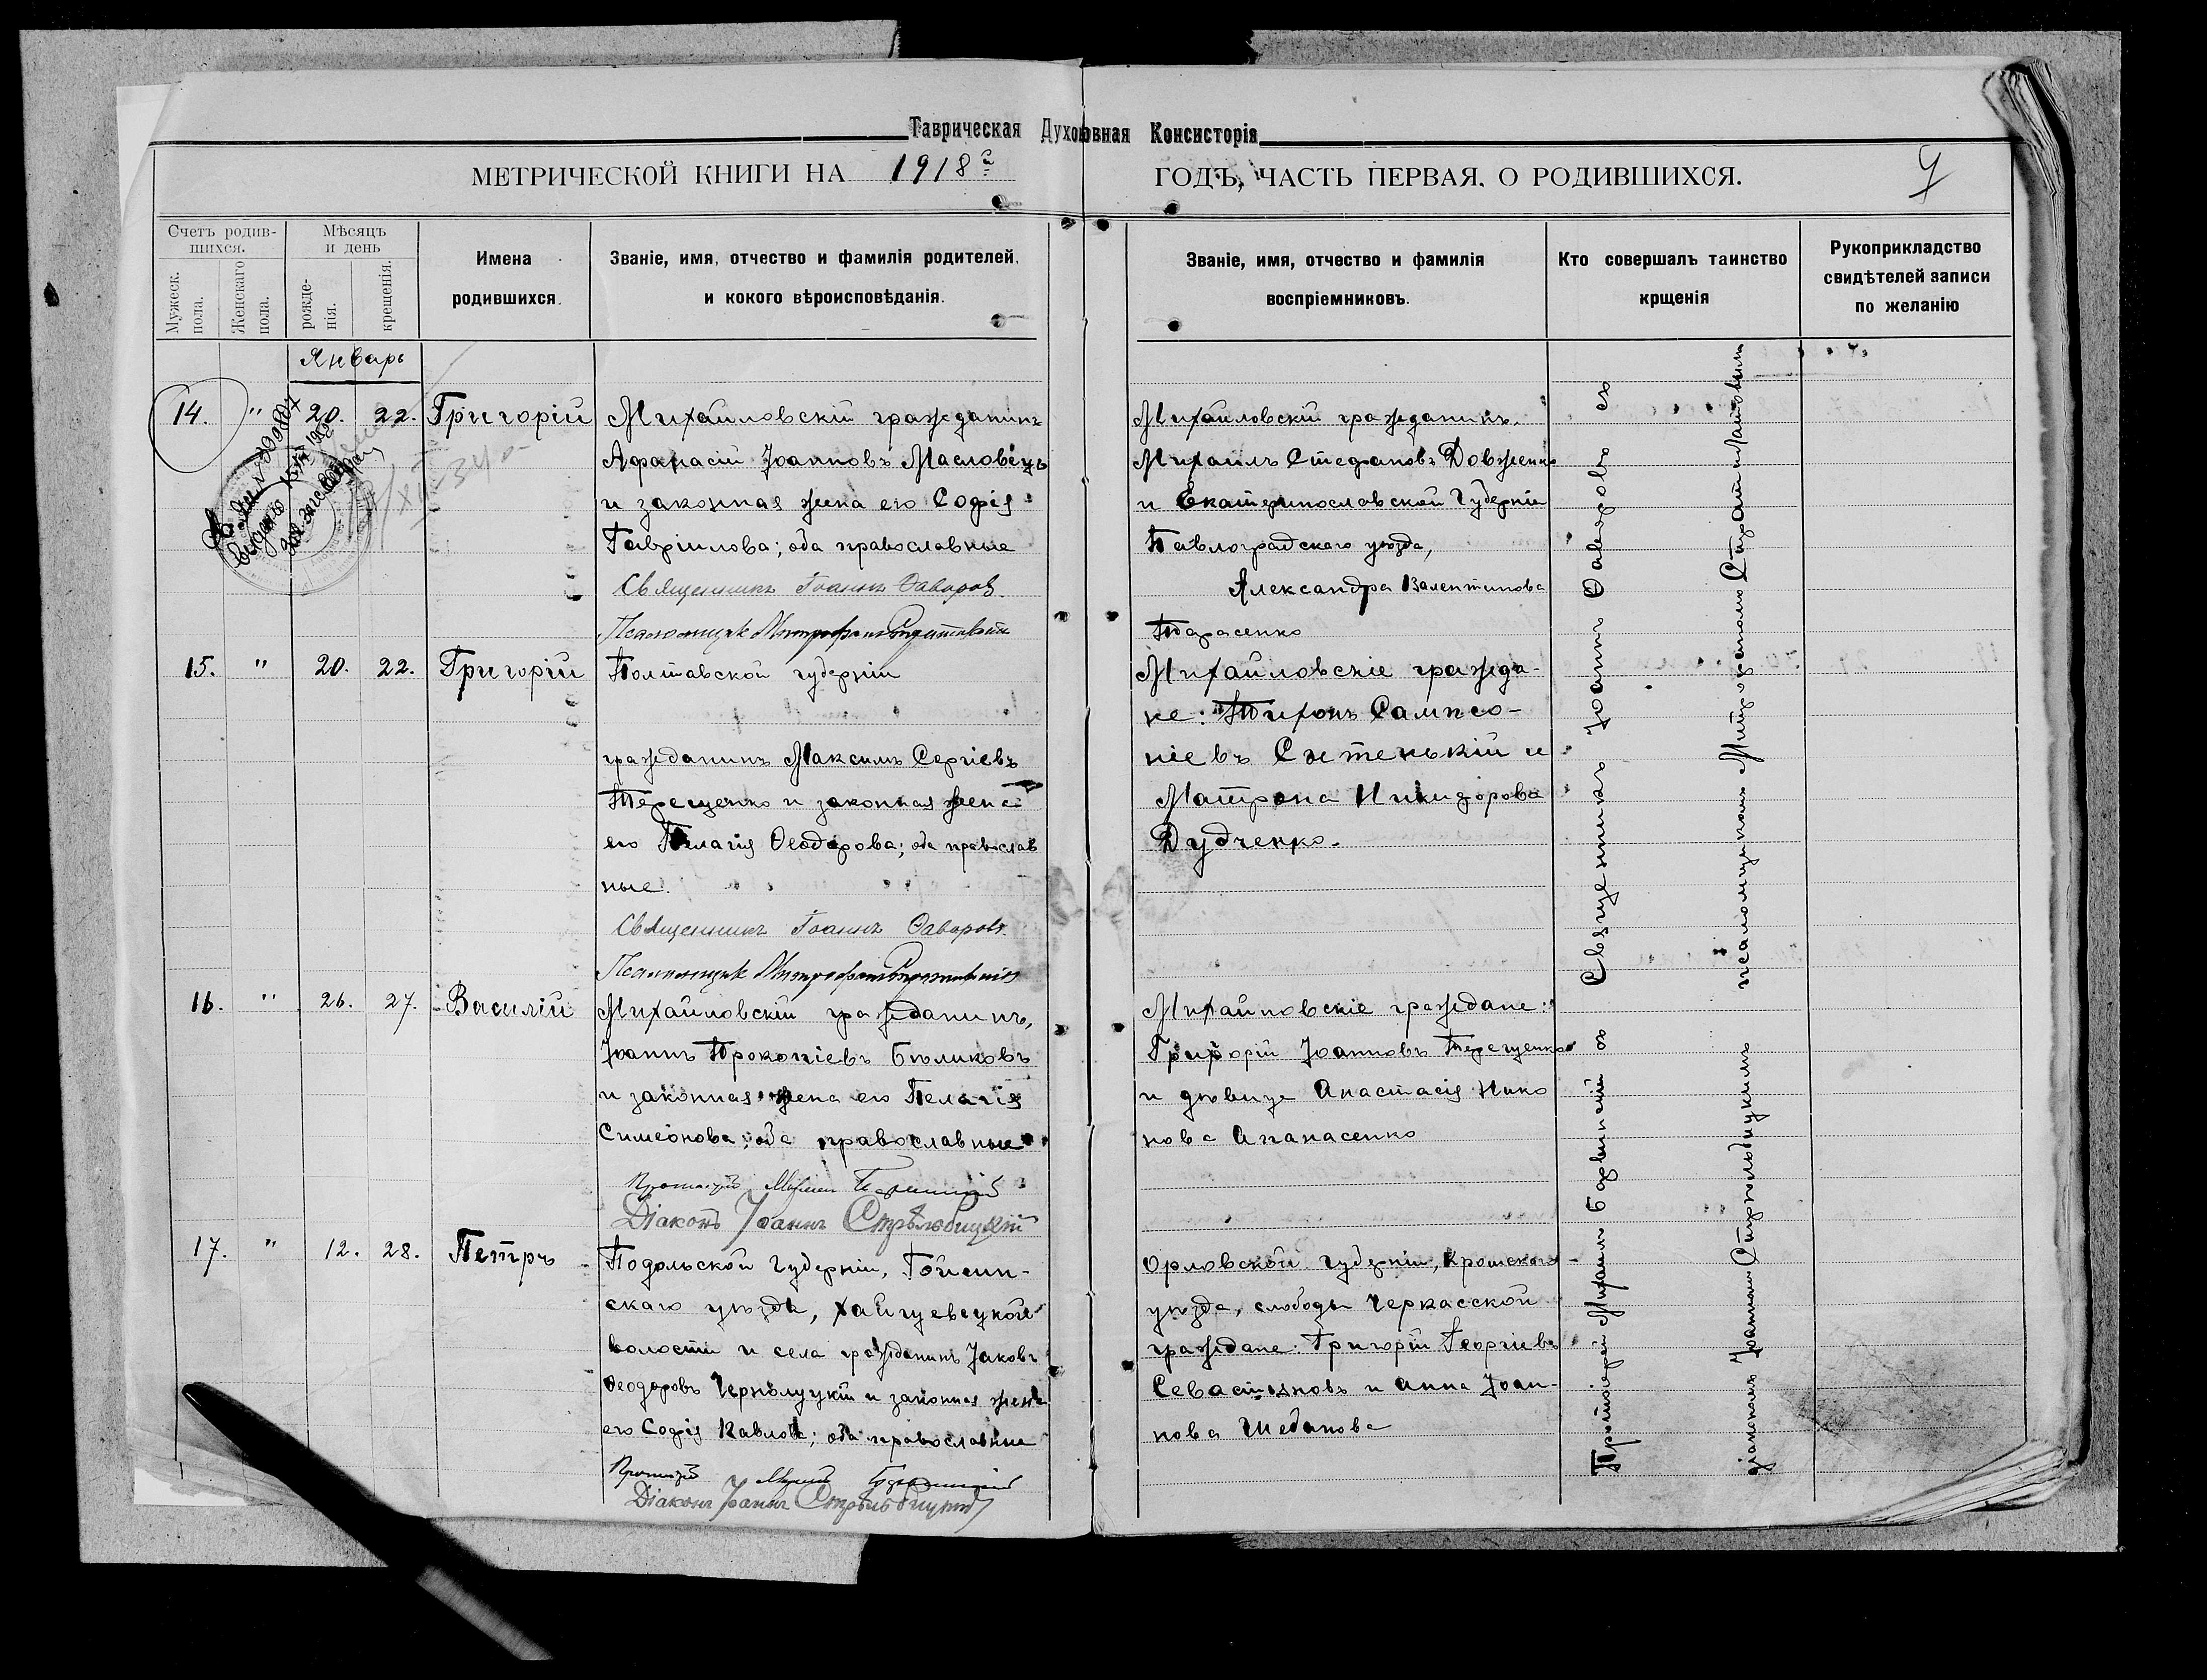 Таврическая Духовная Консисторія
МЕТРИЧЕСКОЙ КНИГИ НА 1918й ГОДЪ, ЧАСТЬ ПЕРВАЯ, О РОДИВШИХСЯ.
Счетъ родив-
шихся.
Мужеск.
пола.
Женскаго
пола.
Мѣсяцъ
и день
рожде-
нія.
крещенія.
Имена
родившихся.
Званіе, имя, отчество и фамилія родителей,
и кокого вѣроисповѣданія.
Званіе, имя, отчество и фамилія
воспріемниковъ.
Кто совершалъ таинство
крщенія
Рукоприкладство
свидѣтелей записи
по желанію
Январь
14. " 20. 22. Григорій
Михайловскій гражданинъ
Афанасій Іоанновъ Масловецъ
и законная жена его Софія
Гавріилова; оба православные
Священникъ Іоаннъ Фаворов.
Псаломщик Митрофан
Михайловскій гражданинъ
Михаилъ Стефановъ Довженко
и Екатеринославской Губерніи
Павлоградскаго уѣзда,
Александра Валентинова
Тарасенко
15. " 20. 22. Григорій
Полтавской губерніи
гражданинъ Максимъ Сергіевъ
Терещенко и законная жена
его Пелагія Феодорова; оба православ
ные.
Священникъ Іоаннъ Фаворов.
Псаломщик Митрофан
Михайловскіе гражда-
не: Тихонъ Сампсо-
ніевъ Сытенькій и
Матрона Никифорова
Дудченко.
Священникъ Іоаннъ Фаворовъ съ
псаломщикомъ Митрофаномъ
16. " 26. 27. Василій
Михайловскій гражданинъ,
Іоаннъ Прокопіевъ Бѣликовъ
и законная жена его Пелагія
Симеонова; оба православные
Протоіерей Михаил
Діаконъ Іоаннъ Стрѣльбицкій
Михайловскіе граждане:
Григорій Іоанновъ Терещенко
и дѣвица Анастасія Нико
нова Апанасенко
17. " 12. 28. Петръ
Подольской Губерніи, Гайсин-
скаго уѣзда,
волости и села гражданинъ Іаковъ
Феодоровъ и законная жена
его Софія Павлова; оба православные
Протоіерей Михаил
Діаконъ Іоаннъ Стрѣльбицкій
Орловской губерніи, Кромскаго
уѣзда, слободы Черкасской
граждане: Григорій Георгіевъ
Севастьяновъ и Анна Іоан-
нова
Протоіерей Михаилъ съ
діакономъ Іоанномъ Стрѣльбицкимъ